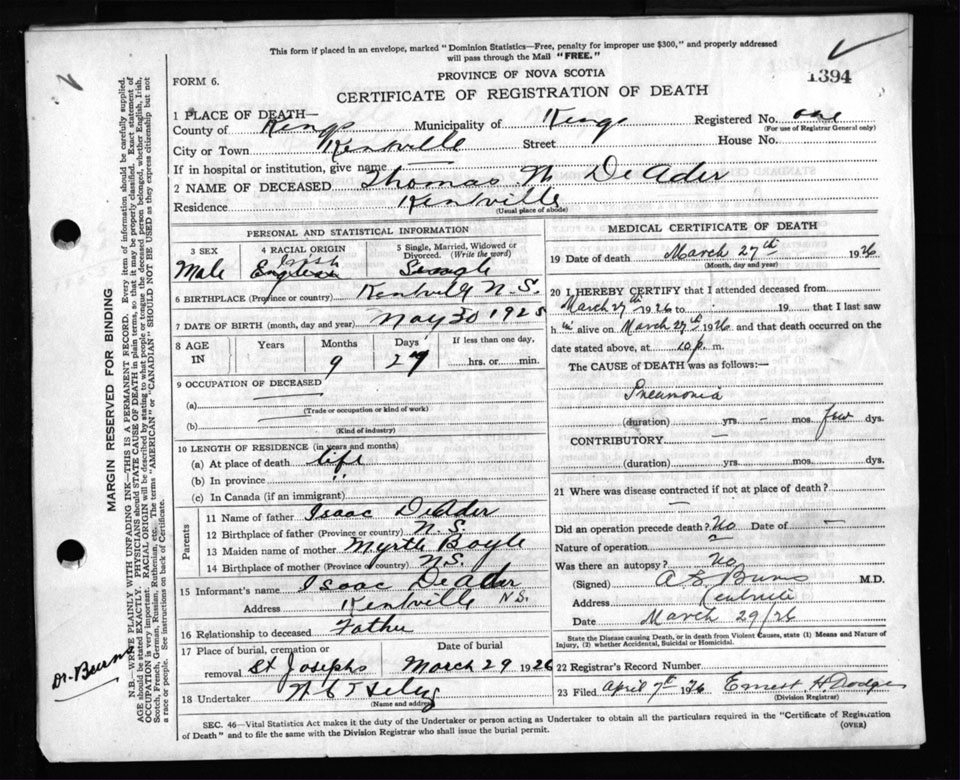 This form if placed in an envelope, marked "Dominion Statistics—Free, penalty for improper use $300," and properly addressed
will pass through the Mail "FREE."
FORM 6.
PROVINCE OF NOVA SCOTIA
1394
CERTIFICATE OF REGISTRATION OF DEATH
1 PLACE OF DEATH—
County of Kings Municipality of Kings Registered No. one
(For use of Registrar General only)
City or Town Kentville Street House No.
If in hospital or institution, give name —
2 NAME OF DECEASED Thomas W DeAder
Residence Kentville
(Usual place of abode)
PERSONAL AND STATISTICAL INFORMATION
3 SEX 4 RACIAL ORIGIN 5 Single, Married, Widowed or Divorced. (Write the word)
Male Irish Single
6 BIRTHPLACE (Province or country) Kentville N.S.
7 DATE OF BIRTH (month, day and year) May 30 1925
8 AGE IN Years Months Days If less than one day,
9 27 hrs. or min.
9 OCCUPATION OF DECEASED
(a) —
(Trade or occupation or kind of work)
(b) —
(Kind of industry)
10 LENGTH OF RESIDENCE (in years and months)
(a) At place of death life
(b) In province "
(c) In Canada (if an immigrant)
Parents
11 Name of father Isaac DeAder
12 Birthplace of father (Province or country) N.S.
13 Maiden name of mother Myrtle Boyle
14 Birthplace of mother (Province or country) N.S.
15 Informant's name Isaac DeAder
Address Kentville N.S.
16 Relationship to deceased Father
17 Place of burial, cremation or removal Date of burial
St Josephs March 29 1926
18 Undertaker
(Name and address)
MEDICAL CERTIFICATE OF DEATH
19 Date of death March 27th 1926
(Month, day and year)
20 I HEREBY CERTIFY that I attended deceased from
March 27th 1926 to 19 that I last saw
him alive on March 27th 1926 and that death occurred on the
date stated above, at 10 p. m.
The CAUSE of DEATH was as follows:—
Pneumonia
(duration) yrs. – mos. few dys.
CONTRIBUTORY —
(duration) yrs. mos. dys.
21 Where was disease contracted if not at place of death?
—
Did an operation precede death? No Date of —
Nature of operation
Was there an autopsy? No
(Signed) A S Burns M.D.
Address Kentville
Date March 29/26
State the Disease causing Death, or in death from Violent Causes, state (1) Means and Nature of
Injury, (2) whether Accidental, Suicidal or Homicidal.
22 Registrar's Record Number
23 Filed April 7th 1926 Ernest H. Dodge
(Division Registrar)
SEC. 46—Vital Statistics Act makes it the duty of the Undertaker or person acting as Undertaker to obtain all the particulars required in the "Certificate of Registration
of Death" and to file the same with the Division Registrar who shall issue the burial permit.
(OVER)
MARGIN RESERVED FOR BINDING
N.B.—WRITE PLAINLY WITH UNFADING INK—THIS IS A PERMANENT RECORD. Every item of information should be carefully supplied.
AGE should be stated EXACTLY. PHYSICIANS should STATE CAUSE OF DEATH in plain terms, so that it may be properly classified. Exact statement of
OCCUPATION is very important. RACIAL ORIGIN will be described by stating to what people or tongue the deceased person belonged, whether English, Irish,
Scotch, French, German, Russian, Ruthenian, etc. The terms "AMERICAN" or "CANADIAN" SHOULD NOT BE USED as they express citizenship but not
a race or people. See instructions on back of Certificate.
Dr. Burns